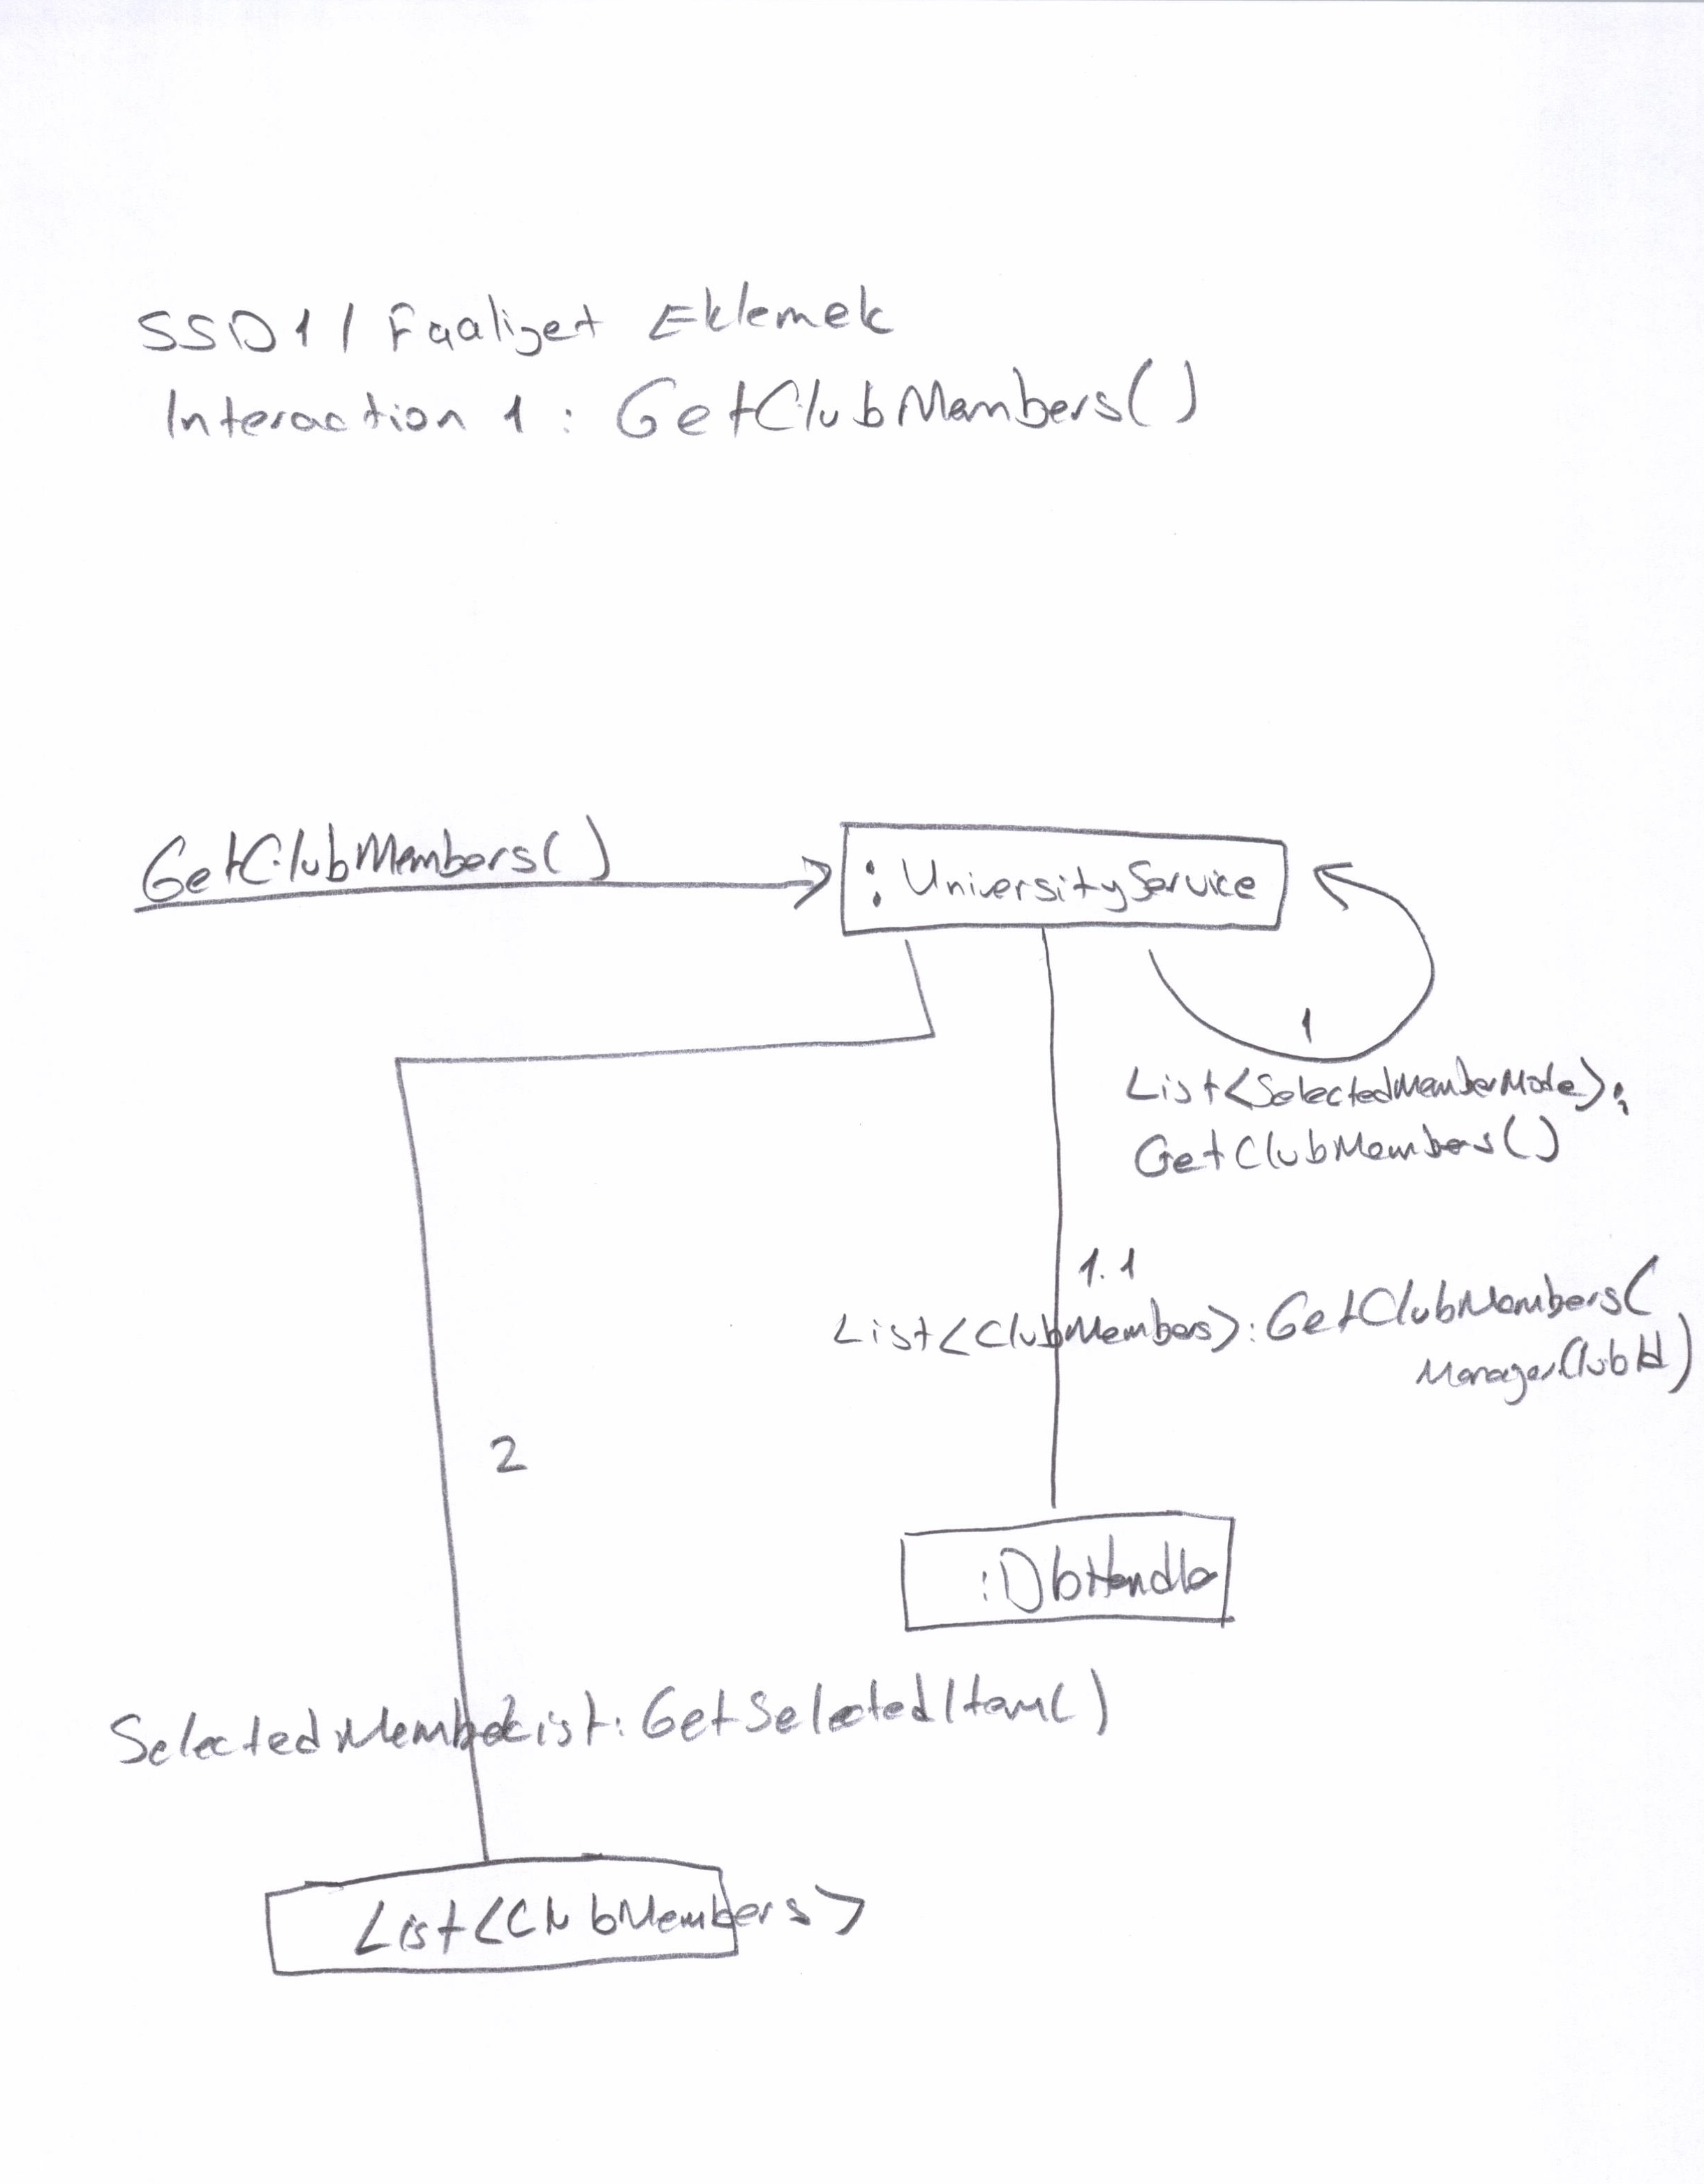 SSD1 / Faaliyet Eklemek
Interaction 1 : GetClubMembers()
GetClubMembers()
: UniversityService
1
List<SelectedMemberMode>:
GetClubMembers()
1.1
List<ClubMembers>:GetClubMembers(
ManagerClubId)
2
:DbHandler
SelectedMemberList:GetSelectedItem()
List<ClubMembers>